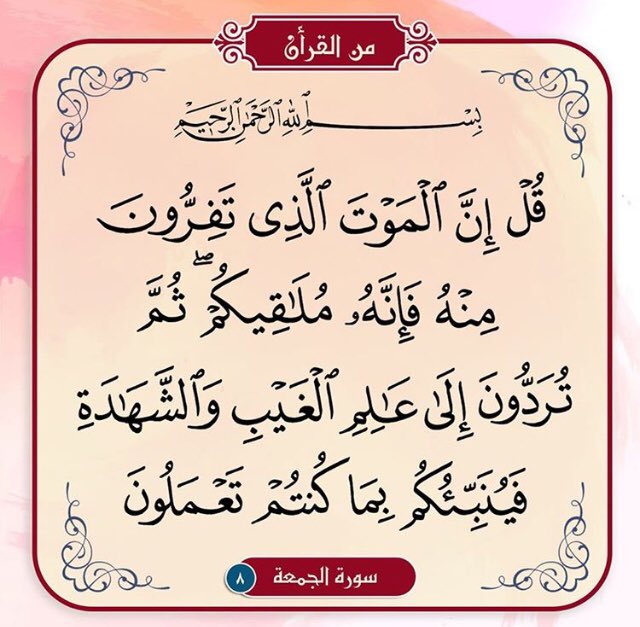 من القرآن
بِسْمِ ٱللَّهِ ٱلرَّحْمَٰنِ ٱلرَّحِيمِ
قُلْ إِنَّ ٱلْمَوْتَ ٱلَّذِى تَفِرُّونَ
مِنْهُ فَإِنَّهُۥ مُلَٰقِيكُمْ ۖ ثُمَّ
تُرَدُّونَ إِلَىٰ عَٰلِمِ ٱلْغَيْبِ وَٱلشَّهَٰدَةِ
فَيُنَبِّئُكُم بِمَا كُنتُمْ تَعْمَلُونَ
سورة الجمعة ٨